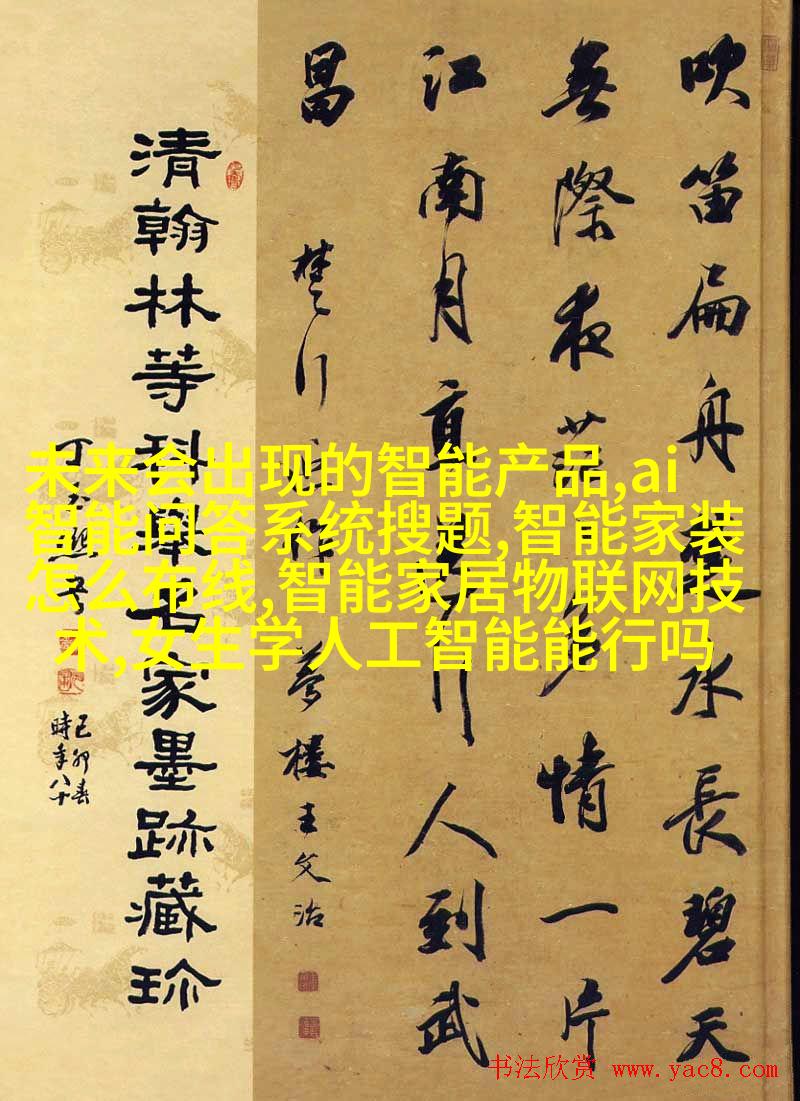 吹笛扁舟水長碧天
無際夜多情一片
江南月直行人到武
昌
楚行 夢樓王文治
清翰林等科舉名家墨跡藏珍
己卯春
時年八十
未来会出现的智能产品,ai
智能问答系统搜题,智能家装
怎么布线,智能家居物联网技
术,女生学人工智能能行吗
书法欣赏 www.yac8.com